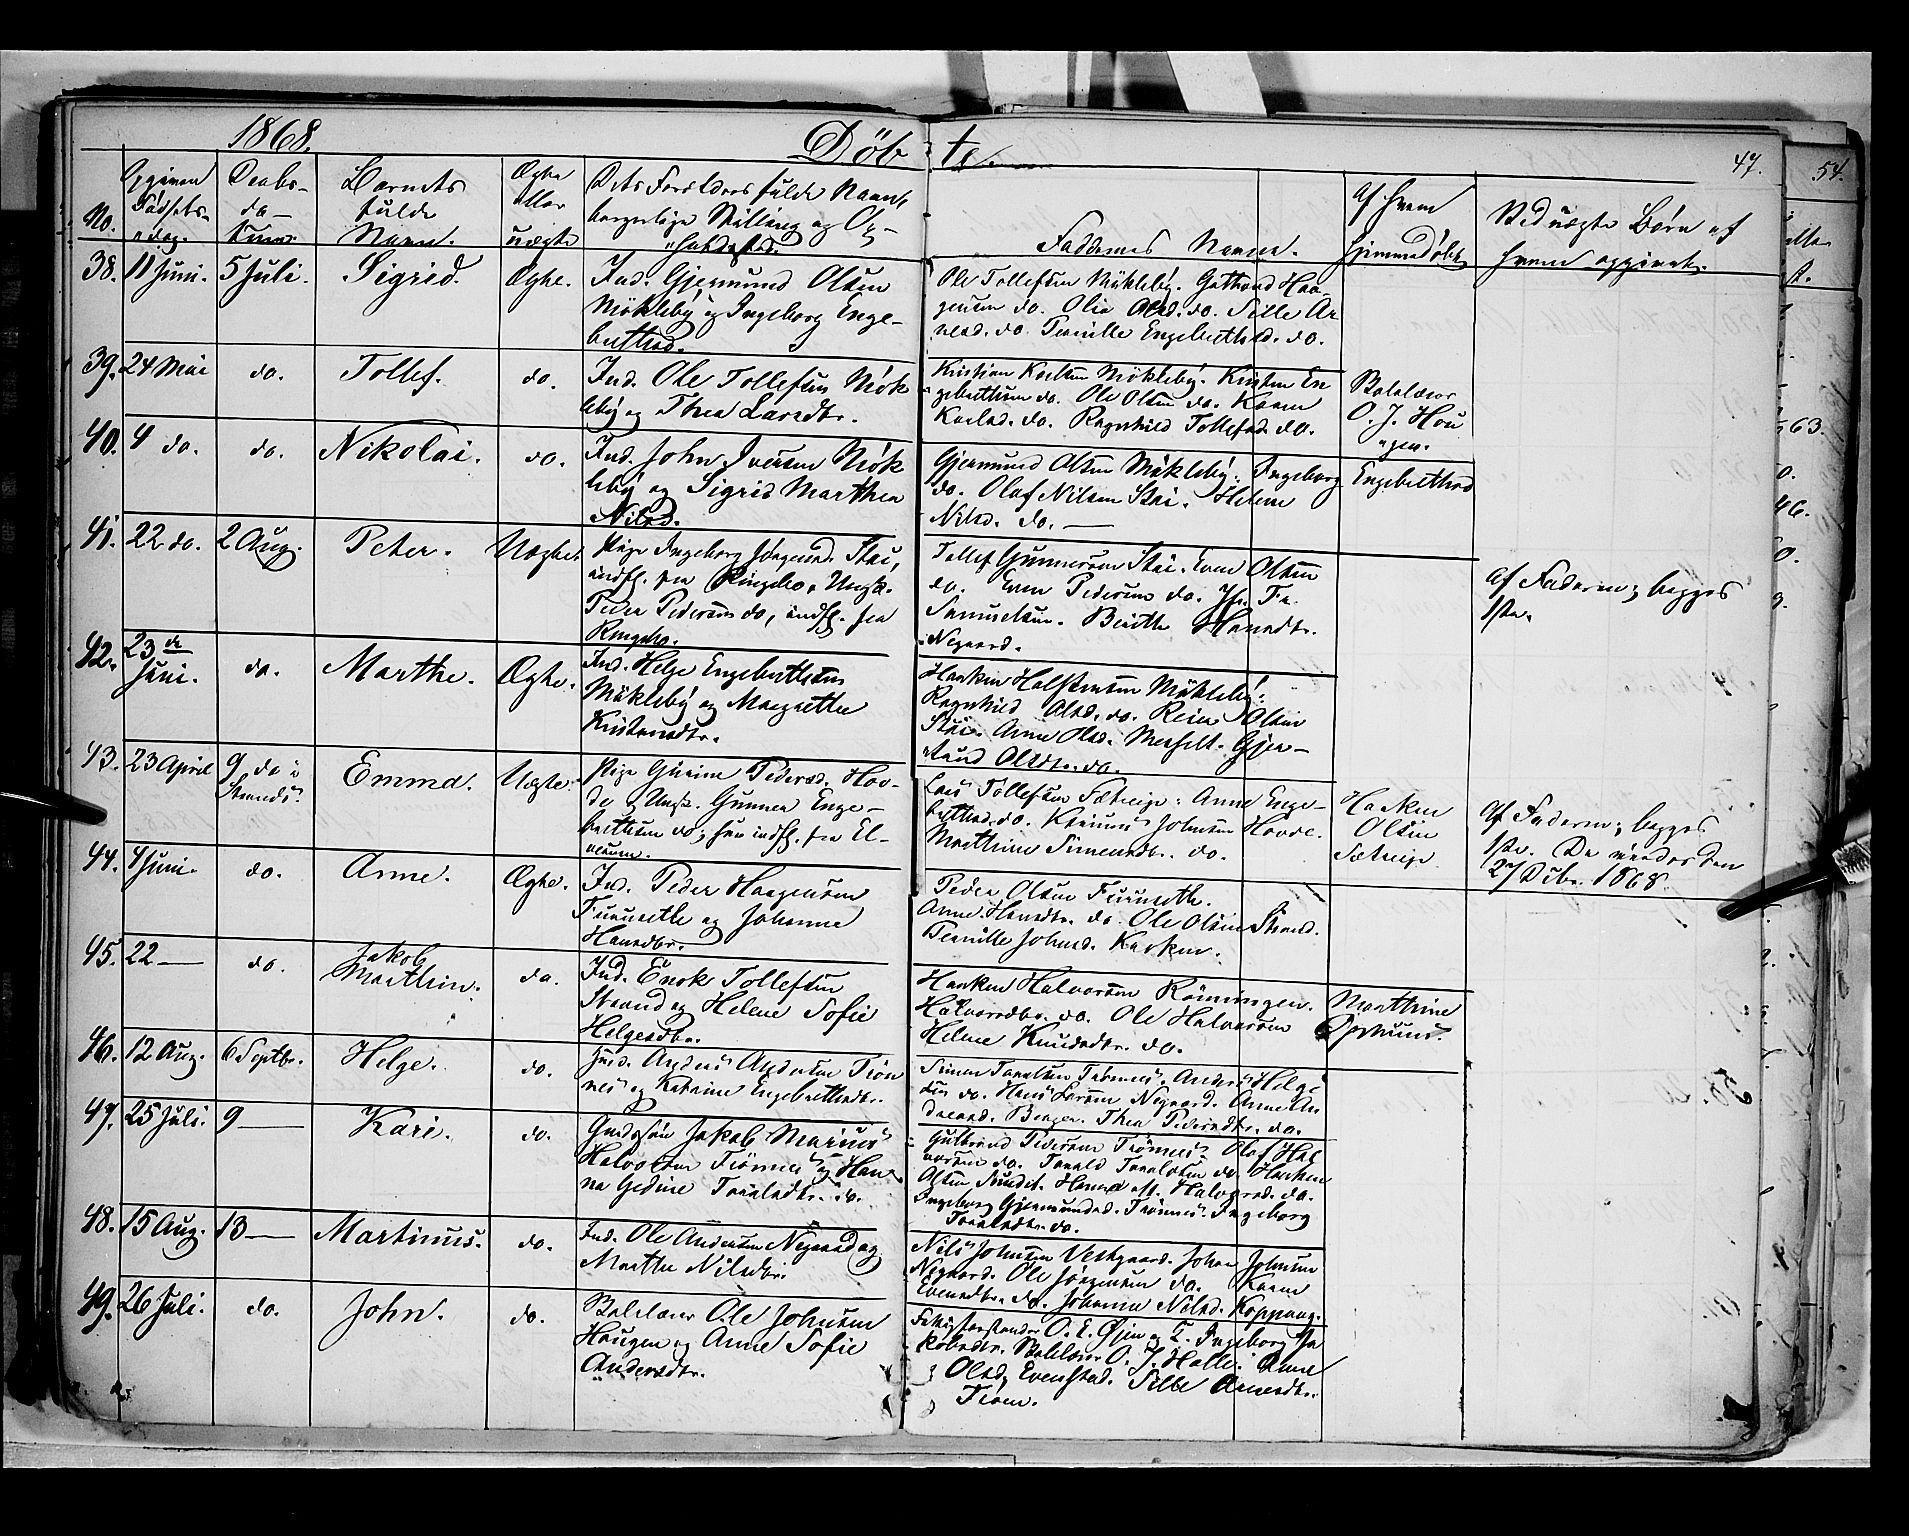 1868.
Døbte.
47.
54.
No.
Opgiven Fødsels-dag.
Daabs-datum
Barnets fulde Navn.
Ægte eller uægte
Dets Forældres fulde Navn, borgerlige Stilling og Op-holdsted.
Faddernes Navne.
Af hvem hjemmedøbt
Ved uægte Børn af hvem opgivet.
38. 11 Juni. 5 Juli. Sigrid. Ægte.
Ind. Gjermund Olsen
Mökleby og Ingeborg Enge-
brethsd.
Ole Tollefsen Mökleby. Guthord Haa-
gensen do. Olia Olsd. do. Sille Ar
nesd. do. Pernille Engebrethsd. do.
39. 24 Mai do. Tollef. do.
Ind. Ole Tollefsen Mök
leby og Thea Larsdtr.
Kristian Karlsen Mökleby. Kristen En
gebrethsen do. Ole Olsen do. Karen
Karlsd. do. Ragnhild Tollefsd. do.
Balslærer
O. J. Hou
gen.
40. 4 do. do. Nikolai. do.
Ind. John Iversen Mök
leby og Sigrid Marthea
Nilsd.
Gjermund Olsen Mökleby. Ingeborg Engebrethsd
do. Olaf Nilsen Stai. Helene
Nilsd. do. —
41. 22 do. 2 Aug. Peter. Uægte.
Pige Ingeborg Jörgensd. Stai,
indfl. fra Ringebo, Ungk.
Peder Pedersen do, indfl. fra
Ringebo.
Tollef Gunnersen Stai. Even Olsen
do. Even Pedersen do. Jfr. Fr.
Samuelsen. Berthe Hansdtr.
Negaard.
Af Faderen; begges
1ste.
42. 23 de Juni. do. Marthe. Ægte.
Ind. Helge Engebrethsen
Mökleby og Margrethe
Kristensdtr.
Haaken Halstensen Mökleby.
Ragnhild Olsd. do. Reier Olsen
Stai. Anne Olsd. Messelt. Gjer-
trud Olsdtr. do.
43. 23 April 9 do i Strands. Emma. Uægte.
Pige Gurine Pedersd. Hov-
de og Ungk. Gunner Enge-
brethsen do, hun indfl. fra El-
verum.
Lars Tollefsen Sætreije. Anne Enge-
brethsd. do. Kristian Johnsen Hovde.
Marthine Simensdtr. do.
Haaken
Olsen
Sætreije
Af Faderen; begges
1ste. De viedes den
27 Decbr. 1868.
44. 4 Juni. do. Anne. Ægte.
Ind. Peder Haagensen
Furuseth og Johanne
Hansdtr.
Peder Olsen Furuseth.
Anne Hansdtr. do. Ole Olsen Strand.
Pernille Johnsd. Kroken.
45. 22 — do. Jakob Marthin. do.
Ind. Enok Tollefsen
Strand og Helene Sofie
Helgesdtr.
Haaken Halvorsen Rönningen.
Halvorsdtr. do. Ole Halvorsen
Helene Knudsdtr. do.
Marthine
Opshund.
46. 12 Aug. 6 Septbr. Helge. do.
Ind. Anders Andersen Trön
nes og Katrine Engebrethsdtr.
Simen Taralsen Trönnes. Anders Helge
sen do. Hans Larsen Negaard. Anne An
dersd. Berger. Thea Pedersdtr. do.
47. 25 Juli. 9 — Kari. do.
Gudssön Jakob Marius
Halvorsen Trönnes og Han
na Gedine Taralsdtr. do.
Gulbrand Pedersen Trönnes. Olaf Hal
vorsen do. Tarald Taraldsen do. Haaken
Olsen Sundet. Hanna M. Halvorsd. do.
Ingeborg Gjermundsd. Trönnes. Ingeborg
Taralsdtr. do.
48. 15 Aug. 13 — Martinus. do.
Ind. Ole Andersen Negaard og
Marthe Nilsdtr.
Nils Johnsen Vestgaard. Johan Johnsen
Negaard. Ole Jörgensen do. Karen
Evensdtr. do. Johanne Nilsd. Koppang.
49. 26 Juli. do. John. do.
Balslærer Ole Johnsen
Haugen og Anne Sofie
Andersdtr.
Fattigforstander O. E. Gjen og L. Ingeborg Ja
kobsdtr. Balslærer O. J. Halle. Anne
Olsd. Evenstad. Sille Arnesdtr.
Tröen.
63.
46.